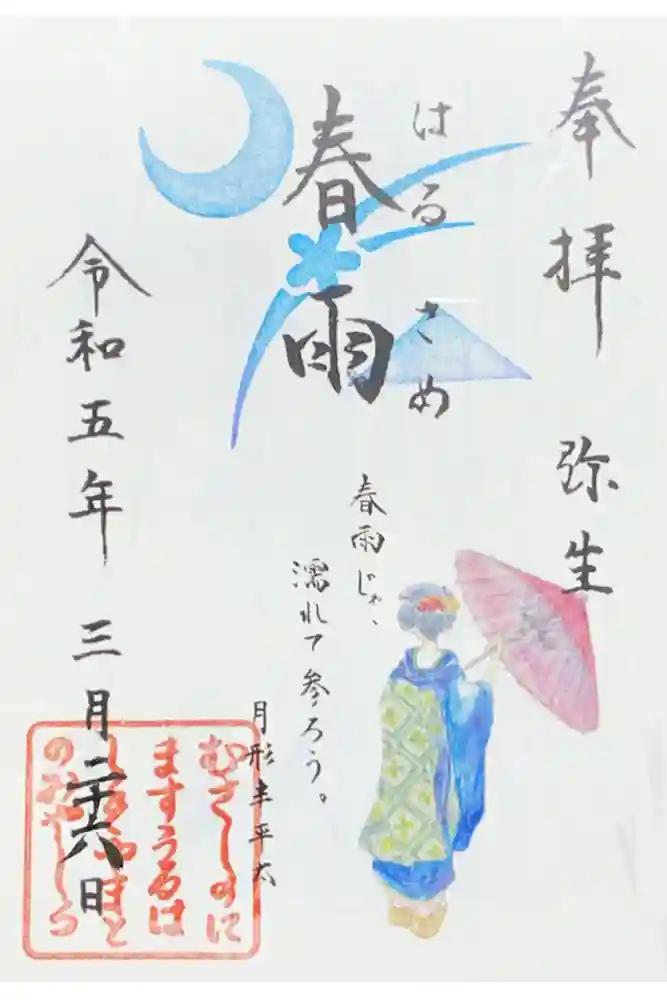 奉拝 弥生
はるさめ
春雨
春雨じゃ、
濡れて参ろう。
月形半平太
令和五年 三月二十六日
むさしのに
ますうるは